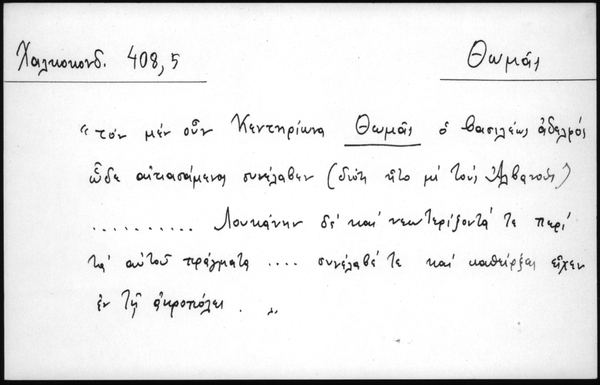 Χαλκοκονδ. 408,5
Θωμᾶς
"τὸν μὲν οὖν Κεντηρίωνα Θωμᾶς ὁ βασιλέως ἀδελφός
ὧδε αἰτιασάμενος συνέλαβεν (διότι ἦτο μὲ τοὺς Ἀλβανούς)
.......... Λουκάνην δὲ καὶ νεωτερίζοντά τε περὶ
τὰ αὐτοῦ πράγματα .... συνέλαβέ τε καὶ καθείρξας εἶχεν
ἐν τῇ ἀκροπόλει .